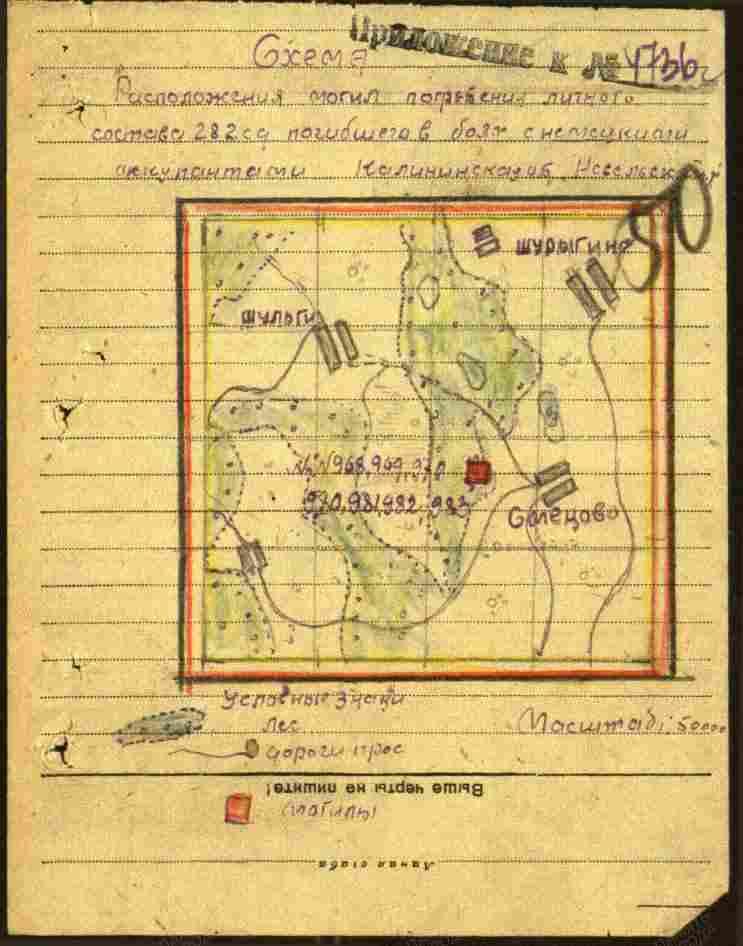 Приложение к № 4736с
Схема
Расположения могил погребения личного
состава 282 сд погибшего в боях с немецкими
оккупантами Калининская об.
50
шурыгино
шулоги
№№ 968, 969, 970
970, 981, 982, 983
Сmецово
Условные знаки
Лес
дороги прос
Масштаб 1:50000
Выше черты не пишите!
(могилы)
Линия сгиба